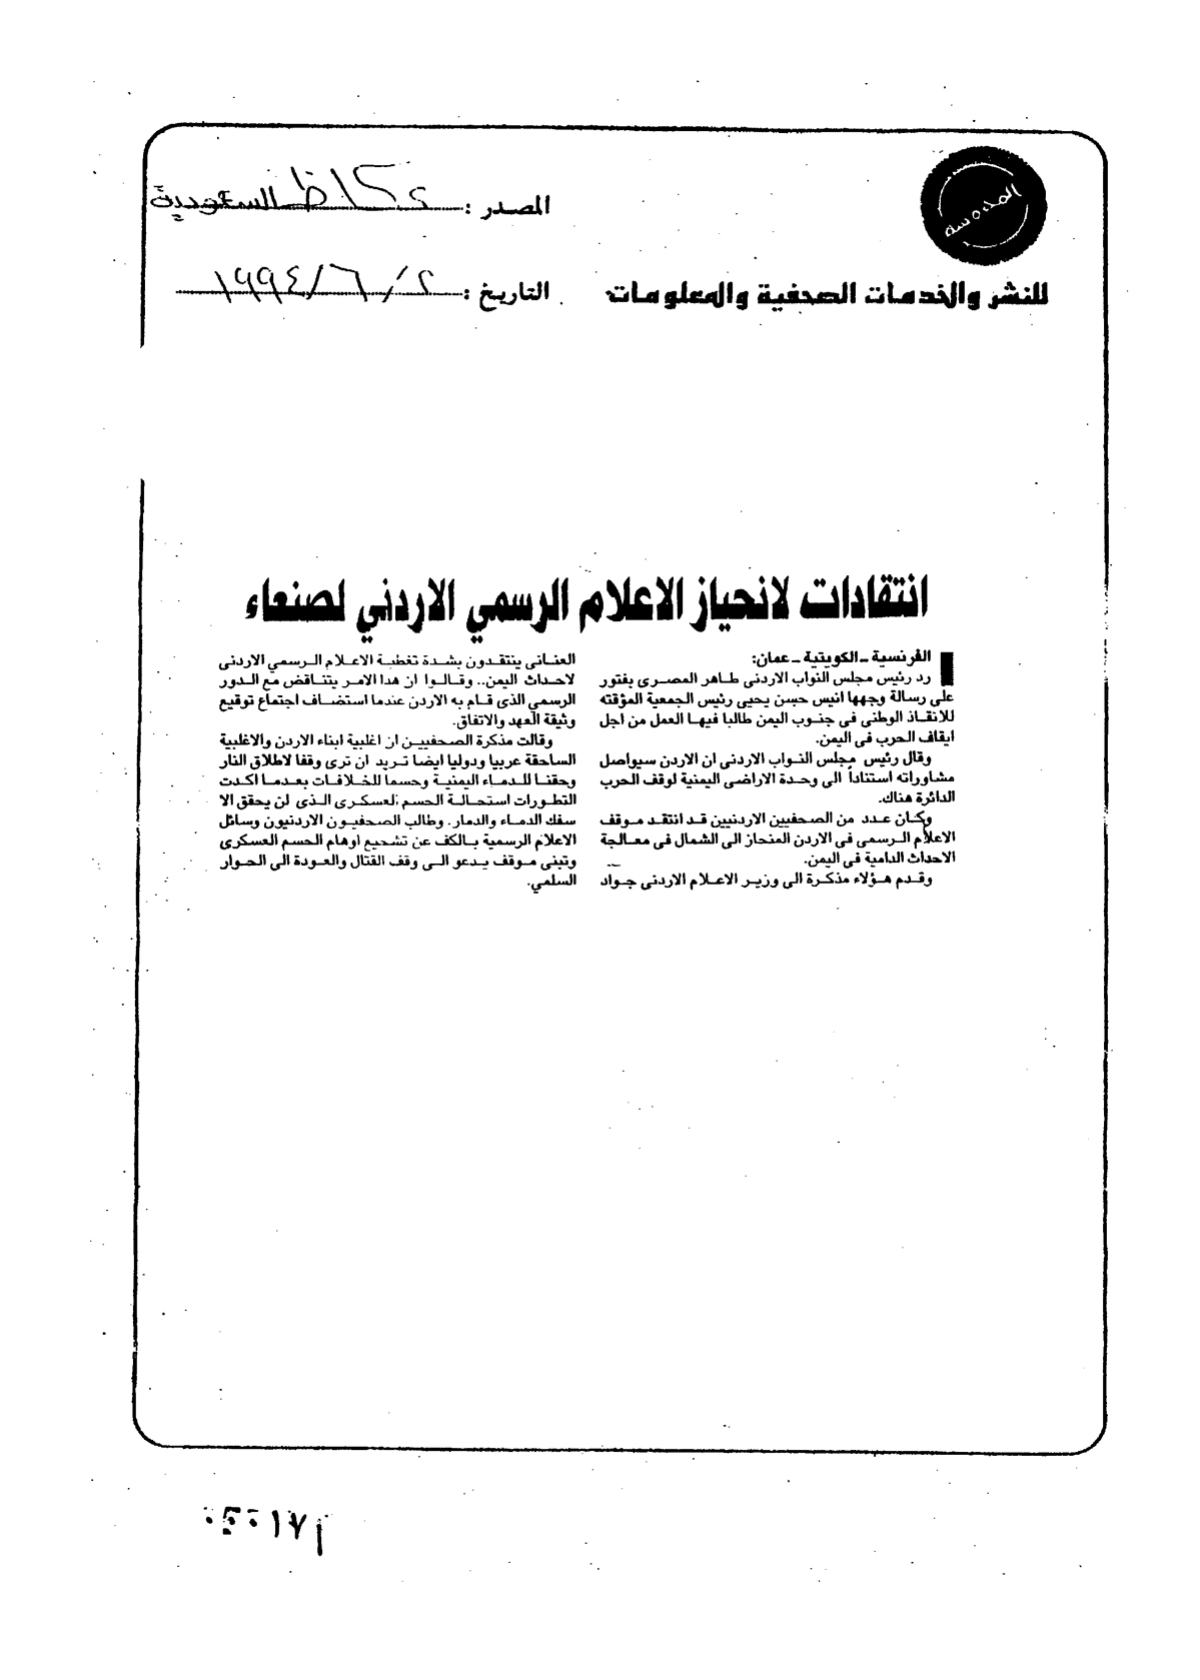 المصدر : عكاظ السعودية
للنشر والخدمات الصحفية والمعلومات
التاريخ : ٢/٦/١٩٩٤
انتقادات لانحياز الاعلام الرسمي الاردني لصنعاء
الفرنسية ـ الكويتية ـ عمان:
رد رئيس مجلس النواب الاردنى طاهر المصرى بفتور
على رسالة وجهها انيس حسن يحيى رئيس الجمعية المؤقته
للانقاذ الوطنى فى جنوب اليمن طالبا فيها العمل من اجل
ايقاف الحرب فى اليمن.
وقال رئيس مجلس النواب الاردنى ان الاردن سيواصل
مشاوراته استناداً الى وحدة الاراضى اليمنية لوقف الحرب
الدائرة هناك.
وكان عدد من الصحفيين الاردنيين قد انتقد موقف
الاعلام الرسمى فى الاردن المنحاز الى الشمال فى معالجة
الاحداث الدامية فى اليمن.
وقدم هؤلاء مذكرة الى وزير الاعلام الاردنى جواد
العنانى ينتقدون بشدة تغطية الاعلام الرسمي الاردنى
لاحداث اليمن.. وقالوا ان هذا الامر يتناقض مع الدور
الرسمي الذى قام به الاردن عندما استضاف اجتماع توقيع
وثيقة العهد والاتفاق.
وقالت مذكرة الصحفيين ان اغلبية ابناء الاردن والاغلبية
الساحقة عربيا ودوليا ايضا تريد ان ترى وقفا لاطلاق النار
وحقنا للدماء اليمنية وحسما للخلافات بعدما اكدت
التطورات استحالة الحسم العسكرى الذى لن يحقق الا
سفك الدماء والدمار. وطالب الصحفيون الاردنيون وسائل
الاعلام الرسمية بالكف عن تشجيع اوهام الحسم العسكرى
وتبنى موقف يدعو الى وقف القتال والعودة الى الحوار
السلمي.